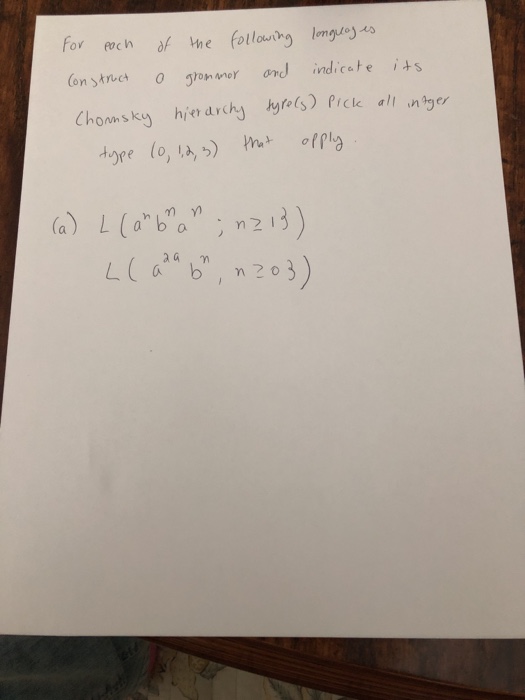 For each of the following languages
Construct a grammar and indicate its
Chomsky hierarchy type(s) Pick all intger
type (0, 1,2, 3) that apply.
(a) L (aⁿbⁿaⁿ ; n≥1})
L( a²ᵃ bⁿ, n≥0})